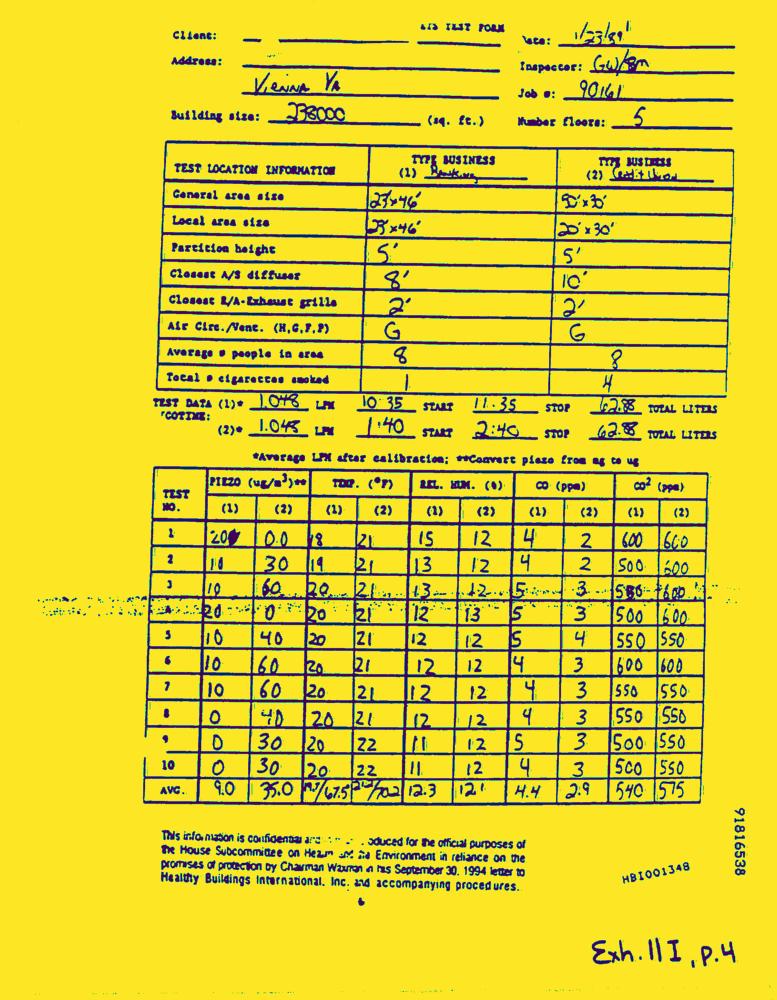 ETS TEST FORM
Client:
Date: 1/23/89
Address:
Inspector: GW/BM
Vienna VA
Job #: 90161
Building size: 238000 (sq. ft.) Number floors: 5
TEST LOCATION INFORMATION TYPE BUSINESS (1) Banking TYPE BUSINESS (2) Credit Union
General area size 23'x46' 90'x30'
Local area size 23'x46' 20'x30'
Partition height 5' 5'
Closest A/S diffuser 8' 10'
Closest R/A-Exhaust grille 2' 2'
Air Circ./Vent. (H,G,F,P) G G
Average # people in area 8 8
Total # cigarettes smoked 1 4
TEST DATA (1)* 1.048 LPM 10:35 START 11:35 STOP 62.88 TOTAL LITERS
COTINE:
(2)* 1.048 LPM 1:40 START 2:40 STOP 62.88 TOTAL LITERS
*Average LPM after calibration; **Convert piezo from mg to ug
TEST NO. PIEZO (ug/m³)** TEMP. (°F) REL. HUM. (%) CO (ppm) CO² (ppm)
(1) (2) (1) (2) (1) (2) (1) (2) (1) (2)
1 20 0.0 18 21 15 12 4 2 600 600
2 10 30 19 21 13 12 4 2 500 600
3 10 60 20 21 13 12 5 3 550 600
4 20 0 20 21 12 13 5 3 500 600
5 10 40 20 21 12 12 5 4 550 550
6 10 60 20 21 12 12 4 3 600 600
7 10 60 20 21 12 12 4 3 550 550
8 0 40 20 21 12 12 4 3 550 550
9 0 30 20 22 11 12 5 3 500 550
10 0 30 20 22 11 12 4 3 500 550
AVG. 9.0 35.0 19.7/67.5 21.2/70.2 12.3 12.1 4.4 2.9 540 575
This information is confidential and produced for the official purposes of
the House Subcommittee on Health and the Environment in reliance on the
promises of protection by Chairman Waxman in his September 30, 1994 letter to
Healthy Buildings International, Inc. and accompanying procedures.
HBI001348
91816538
Exh. 11 I, p.4